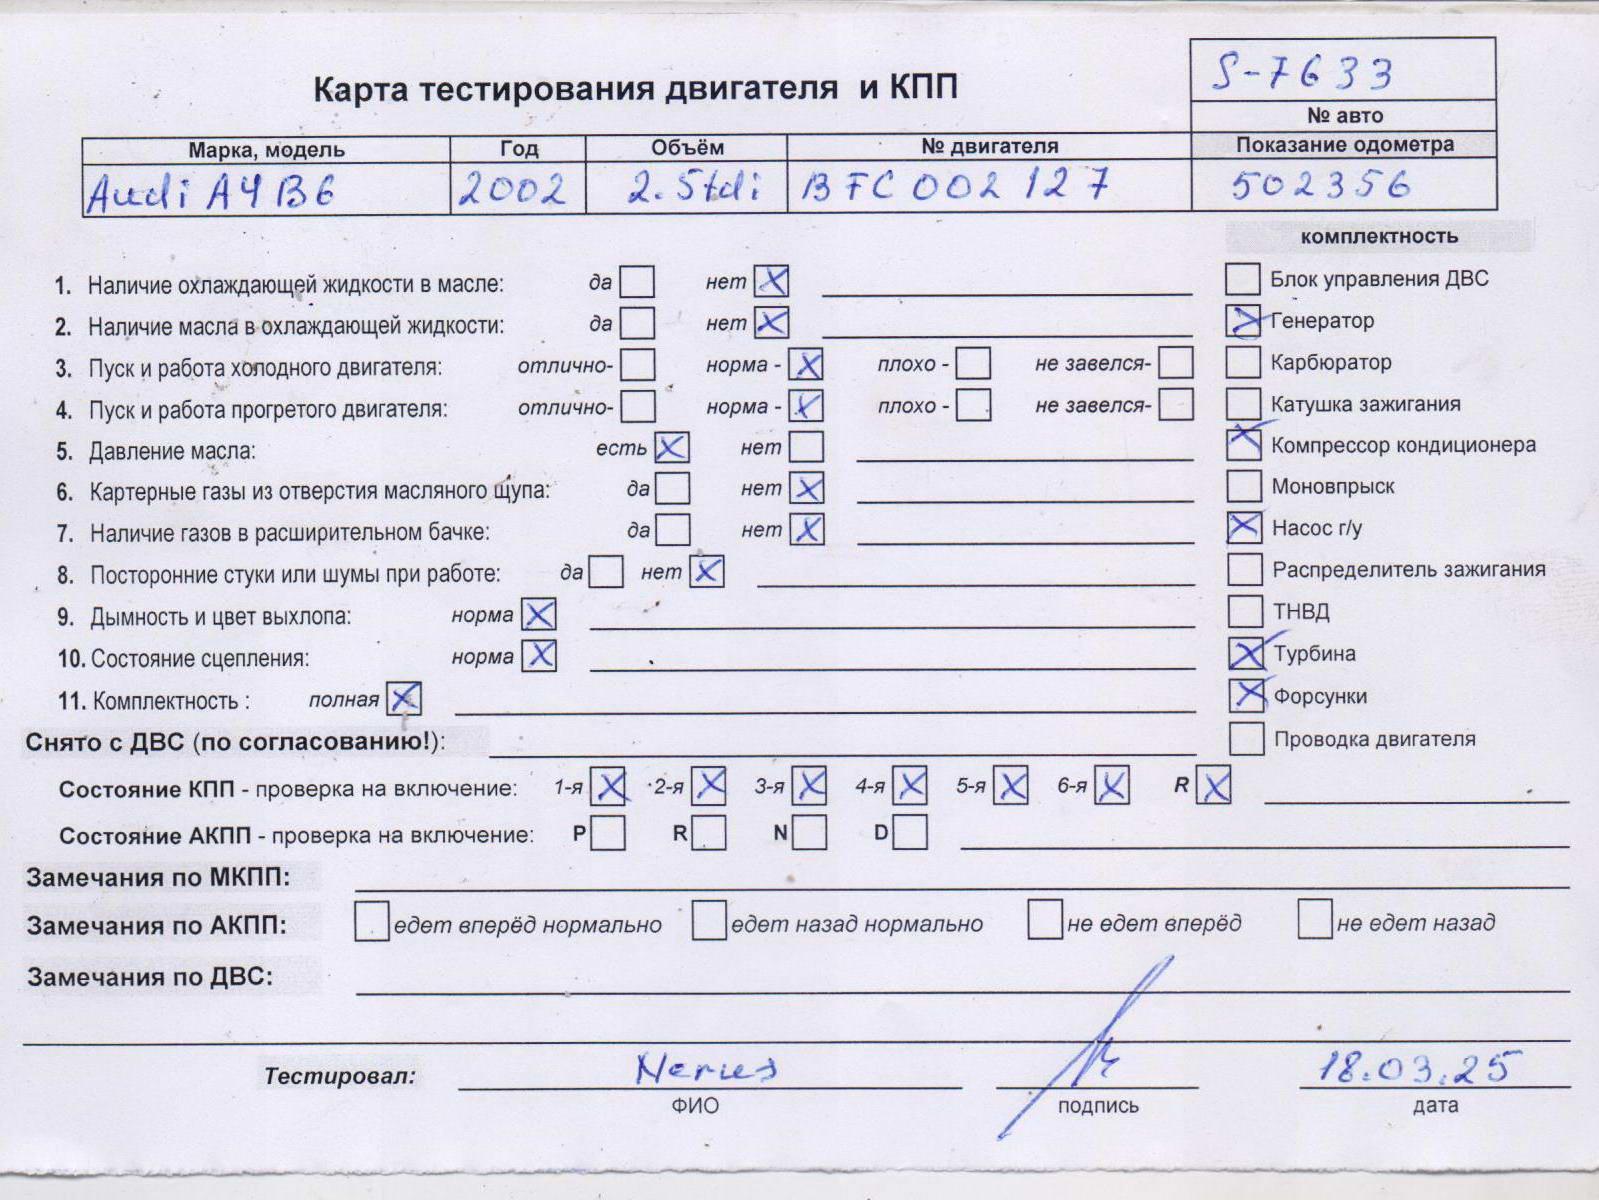 S-7633
Карта тестирования двигателя и КПП
№ авто
Марка, модель Год Объём № двигателя Показание одометра
Audi A4 B6 2002 2.5tdi BFC 002 127 502356
комплектность
1. Наличие охлаждающей жидкости в масле: да нет X Блок управления ДВС
2. Наличие масла в охлаждающей жидкости: да нет X X Генератор
3. Пуск и работа холодного двигателя: отлично- норма - X плохо - не завелся- Карбюратор
4. Пуск и работа прогретого двигателя: отлично- норма - X плохо - не завелся- Катушка зажигания
5. Давление масла: есть X нет X Компрессор кондиционера
6. Картерные газы из отверстия масляного щупа: да нет X Моновпрыск
7. Наличие газов в расширительном бачке: да нет X X Насос г/у
8. Посторонние стуки или шумы при работе: да нет X Распределитель зажигания
9. Дымность и цвет выхлопа: норма X ТНВД
10. Состояние сцепления: норма X X Турбина
11. Комплектность : полная X X Форсунки
Снято с ДВС (по согласованию!): Проводка двигателя
Состояние КПП - проверка на включение: 1-я X 2-я X 3-я X 4-я X 5-я X 6-я X R X
Состояние АКПП - проверка на включение: P R N D
Замечания по МКПП:
Замечания по АКПП: едет вперёд нормально едет назад нормально не едет вперёд не едет назад
Замечания по ДВС:
Тестировал: 18.03.25
ФИО подпись дата